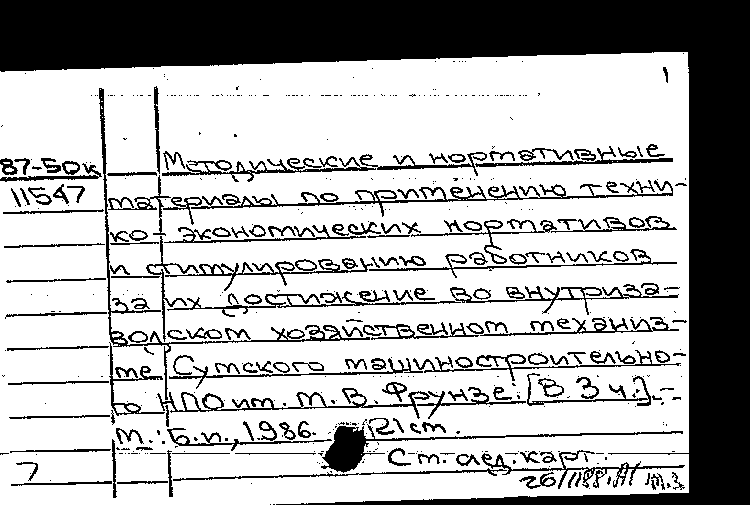 1
87-50к
11547
Методические и нормативные
материалы по применению техни-
ко-экономических нормативов
и стимулированию работников
за их достижение во внутриза-
водском хозяйственном механиз-
ме Сумского машиностроительно-
го НПО им. М. В. Фрунзе. [В 3 ч.].-
М.: Б.и., 1986. 21 см.
См. след. карт.
7